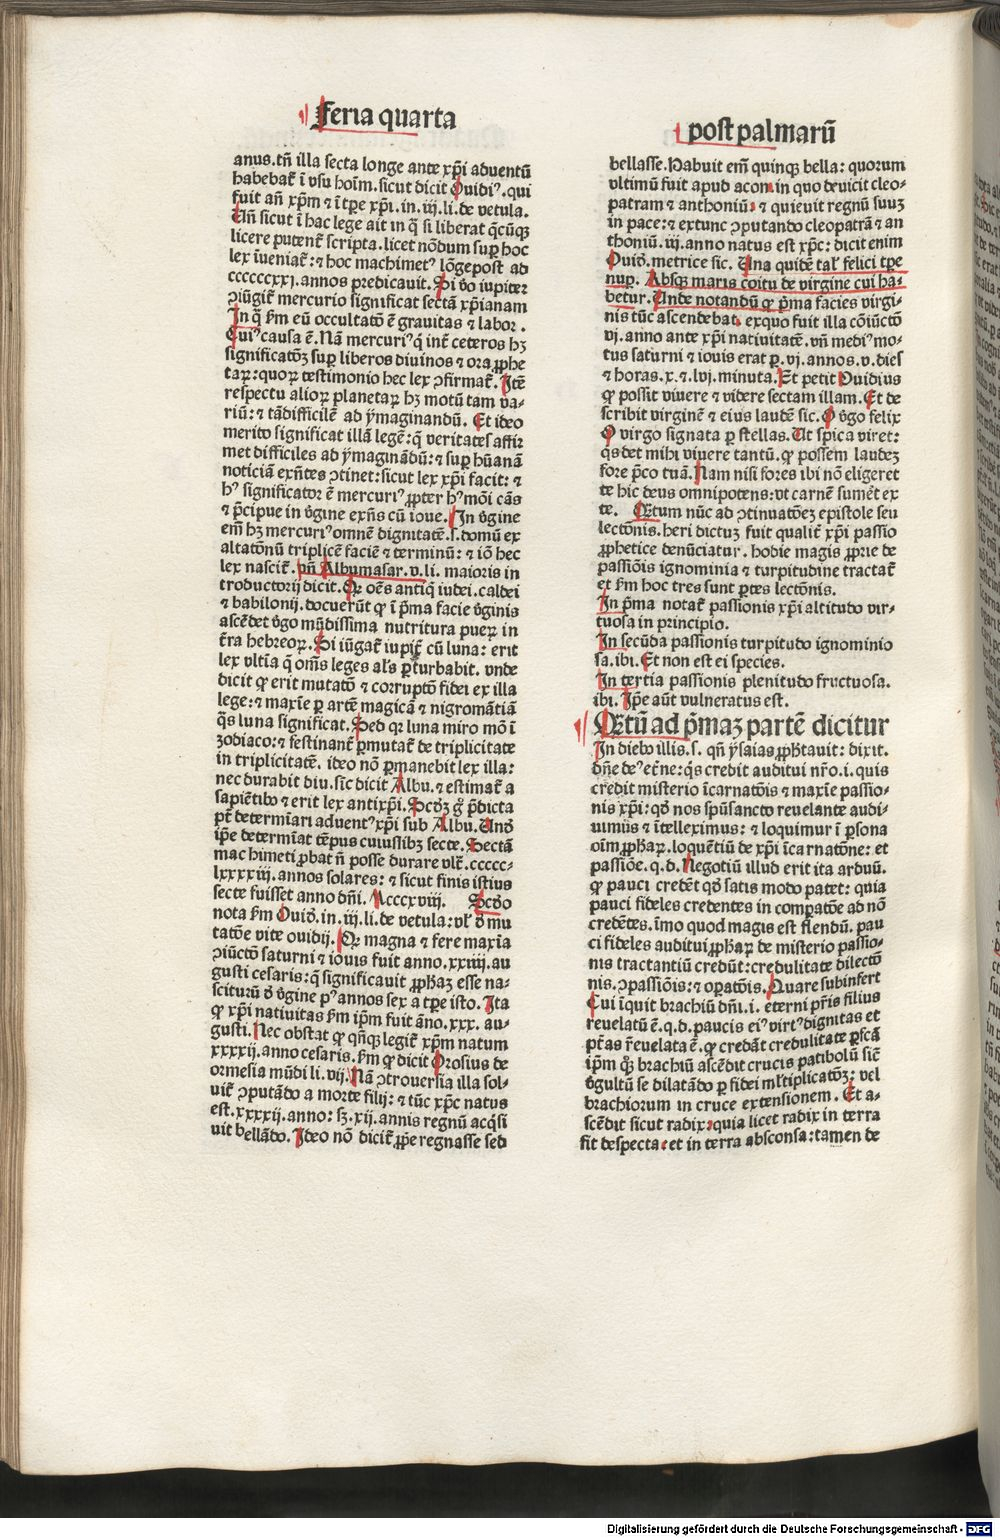 Feria quarta
post palmarū
anus. tñ illa secta longe ante xp̄i aduentū
habebat̄ ī vsu hoīm. sicut dicit Ouidiꝰ. qui
fuit añ xp̄m ⁊ ī tp̄e xp̄i. in. iij. li. de vetula.
Uñ sicut ī hac lege ait in q̄ si liberat q̄cūqꝫ
licere putent̄ scripta. licet nōdum suꝑ hoc
lex īueniat̄: ⁊ hoc machimetꝰ lōgepost ad
ccccccxxj. annos predicauit. Si v̄o iupiter
ꝯiūgit̄ mercurio significat sectā xp̄ianam
In q̄ s̄m eū occultatō ē grauitas ⁊ labor.
Cuiꝰ causa ē. Nā mercuriꝰ q̄ int̄ ceteros hꝫ
significatōꝫ suꝑ liberos diuinos ⁊ ora ꝓphe
taꝝ: quoꝝ testimonio hec lex ꝯfirmat̄. Itē
respectu alioꝝ planetaꝝ hꝫ motū tam va-
riū: ⁊ tā difficilē ad ymaginandū. Et ideo
merito significat illā legē: q̄ veritates affir
met difficiles ad ymaginādū: ⁊ suꝑ hūanā
noticiā exn̄tes ꝯtinet: sicut lex xp̄i facit: ⁊
hꝰ significator ē mercuriꝰ ꝓpter hꝰmōi cās
⁊ p̄cipue in v̄gine exn̄s cū ioue. In v̄gine
em̄ hꝫ mercuriꝰ omnē dignitatē. s. domū ex
altatōnū triplicē faciē ⁊ terminū: ⁊ iō hec
lex nascit̄. pn̄ Albumasar. v. li. maioris in
troductorij dicit. Qꝛ oēs antiq̄ iudei. caldei
⁊ babilonij. docuerūt ꝙ ī p̄ma facie v̄ginis
ascēdet v̄go mūdissima nutritura pueꝝ in
t̄ra hebreoꝝ. Si iūgat̄ iupit̄ cū luna: erit
lex vltīa q̄ om̄s leges al̓s ꝑturbabit. vnde
dicit ꝙ erit mutatō ⁊ corruptō fidei ex illa
lege: ⁊ maxīe ꝑ artē magicā ⁊ nigromātiā
q̄s luna significat. Sed qꝛ luna miro mō ī
zodiaco: ⁊ festinant̄ ꝑmutat̄ de triplicitate
in triplicitatē. ideo nō ꝑmanebit lex illa:
nec durabit diu. sic dicit Albu. ⁊ estimat̄ a
sapiētibꝰ ⁊ erit lex antixp̄i. Scd̄ꝫ g̊ p̄dicta
pt̄ determīari aduentꝰ xp̄i sub Albu. Und̄
ip̄e determīat tēpus cuiuslibꝫ secte. Sectā
mac himeti ꝓbat ñ posse durare vlt̄. ccccc-
lxxxxiij. annos solares: ⁊ sicut finis istius
secte fuisset anno dn̄i. Mcccxviij. Scd̄o
nota s̄m Ouid̄. in. iij. li. de vetula: vl̓ d̄ mu
tatōe vite ouidij. Qꝛ magna ⁊ fere maxīa
ꝯiūctō saturni ⁊ iouis fuit anno. xxiiij. au
gusti cesaris: q̄ significauit ꝓphaꝫ esse na-
sciturū d̄ v̄gine pꝰ annos sex a tp̄e isto. Ita
ꝙ xp̄i natiuitas s̄m ip̄m fuit āno. xxx. au-
gusti. Nec obstat ꝙ qn̄qꝫ legit̄ xp̄m natum
xxxxij. anno cesaris. s̄m ꝙ dicit Orosius de
ormesia mūdi li. vij. Nā ꝯtrouersia illa sol-
uit̄ ꝯputādo a morte filij: ⁊ tūc xp̄c natus
est. xxxxij. anno: sꝫ. xij. annis regnū acq̄si
uit bellādo. Ideo nō dicit̄ ꝓpe regnasse sed
bellasse. Habuit em̄ quinqꝫ bella: quorum
vltimū fuit apud acon. in quo deuicit cleo-
patram ⁊ anthoniū: ⁊ quieuit regnū suuꝫ
in pace: ⁊ extunc ꝯputando cleopatrā ⁊ an
thoniū. iij. anno natus est xp̄c: dicit enim
Ouid̄. metrice sic. Una quidē tal̓ felici tp̄e
nuꝑ. Absqꝫ maris coitu de virgine cui ha-
betur. Unde notandū ꝙ p̄ma facies virgi-
nis tūc ascendebat. exquo fuit illa cōiūctō
vj. anno ante xp̄i natiuitatē. vn̄ mediꝰ mo-
tus saturni ⁊ iouis erat ꝑ. vj. annos. v. dies
⁊ horas. x. ⁊. lvj. minuta. Et petit Ouidius
ꝙ possit viuere ⁊ videre sectam illam. Et de
scribit virginē ⁊ eius laudē sic. O v̄go felix
O virgo signata ꝑ stellas. Ut spica viret:
q̄s det mihi viuere tantū. ꝙ possem laudeꝫ
fore p̄co tuā. Nam nisi fores ibi nō eligeret
te hic deus omnipotens: vt carnē sumēt ex
te. Qꝫtum nūc ad ꝯtinuatōeꝫ epistole seu
lectōnis. heri dictuꝫ fuit qualit̄ xp̄i passio
ꝓphetice denūciatur. hodie magis ꝓprie de
passiōis ignominia ⁊ turpitudine tractat̄
et s̄m hoc tres sunt ꝑtes lectōnis.
In p̄ma notat̄ passionis xp̄i altitudo vir-
tuosa in principio.
In secūda passionis turpitudo ignominio
sa. ibi. Et non est ei species.
In tertia passionis plenitudo fructuosa.
ibi. Ip̄e aūt vulneratus est.
Qꝫtū ad p̄maꝫ partē dicitur
In diebꝰ illis. s. qn̄ ysaias ꝓphtauit: dixit.
dn̄e deꝰ et̄ne: q̄s credit auditui nr̄o. i. quis
credit misterio īcarnatōis ⁊ maxīe passio-
nis xp̄i: qd̄ nos spūsancto reuelante audi-
uimus ⁊ ītelleximus: ⁊ loquimur ī ꝑsona
oīm ꝓphaꝝ. loquētiū de xp̄i īcarnatōne: et
passiōe. q. d. Negotiū illud erit ita arduū.
ꝙ pauci credēt qd̄ satis modo patet: quia
pauci fideles credentes in comꝑatōe ad nō
credētes. īmo quod magis est flendū. pau
ci fideles auditui ꝓphaꝝ de misterio passio-
nis tractantiū credūt: credulitate dilectō
nis. ꝯpassiōis: ⁊ oꝑatōis. Quare subinfert
Cui īquit brachiū dn̄i. i. eterni pr̄is filius
reuelatū ē. q. d. paucis eiꝰ virtꝰ dignitas et
pt̄as r̄euelata ē. ꝙ credāt credulitate ꝑfcā
ip̄m q̄si brachiū ascēdit crucis patibolū sic̄
v̄gultū se dilatādo ꝑ fidei ml̓tiplicatōꝫ: vel
brachiorum in cruce extensionem. Et a-
scēdit sicut radix: quia licet radix in terra
sit despecta: et in terra absconsa: tamen de
Digitalisierung gefördert durch die Deutsche Forschungsgemeinschaft - DFG